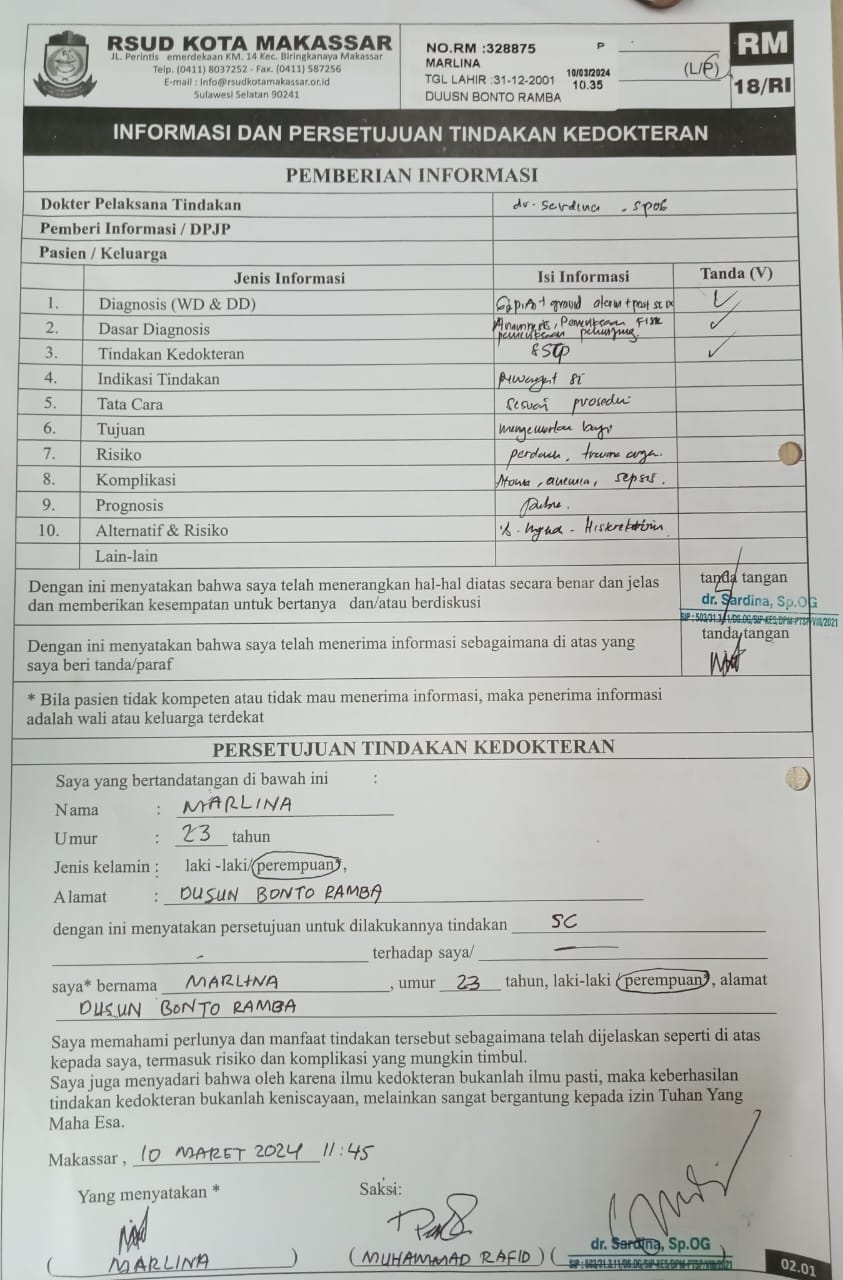 RSUD KOTA MAKASSAR
JL. Perintis emerdekaan KM. 14 Kec. Biringkanaya Makassar
Telp. (0411) 8037252 - Fax. (0411) 587256
E-mail : Info@rsudkotamakassar.or.id
Sulawesi Selatan 90241
NO.RM :328875 P
MARLINA
TGL LAHIR :31-12-2001 10/03/2024
DUUSN BONTO RAMBA 10.35
(L/P)
RM
18/RI
INFORMASI DAN PERSETUJUAN TINDAKAN KEDOKTERAN
PEMBERIAN INFORMASI
Dokter Pelaksana Tindakan dr. Sardina . SpOG
Pemberi Informasi / DPJP
Pasien / Keluarga
Jenis Informasi Isi Informasi Tanda (V)
1. Diagnosis (WD & DD) gravid aterm + post sc
2. Dasar Diagnosis Anamnesis, Pemeriksaan Fisik
pemeriksaan penunjang.
3. Tindakan Kedokteran
4. Indikasi Tindakan
5. Tata Cara Sesuai prosedur
6. Tujuan mengeluarkan bayi
7. Risiko perdarah, trauma organ.
8. Komplikasi Atonia, anemia, sepsis.
9. Prognosis
10. Alternatif & Risiko
Lain-lain
Dengan ini menyatakan bahwa saya telah menerangkan hal-hal diatas secara benar dan jelas
dan memberikan kesempatan untuk bertanya dan/atau berdiskusi
tanda tangan
dr. Sardina, Sp.OG
Dengan ini menyatakan bahwa saya telah menerima informasi sebagaimana di atas yang
saya beri tanda/paraf
tanda tangan
* Bila pasien tidak kompeten atau tidak mau menerima informasi, maka penerima informasi
adalah wali atau keluarga terdekat
PERSETUJUAN TINDAKAN KEDOKTERAN
Saya yang bertandatangan di bawah ini :
Nama : MARLINA
Umur : 23 tahun
Jenis kelamin : laki -laki/perempuan*,
Alamat : DUSUN BONTO RAMBA
dengan ini menyatakan persetujuan untuk dilakukannya tindakan SC
- terhadap saya/ —
saya* bernama MARLINA , umur 23 tahun, laki-laki (perempuan*, alamat
DUSUN BONTO RAMBA
Saya memahami perlunya dan manfaat tindakan tersebut sebagaimana telah dijelaskan seperti di atas
kepada saya, termasuk risiko dan komplikasi yang mungkin timbul.
Saya juga menyadari bahwa oleh karena ilmu kedokteran bukanlah ilmu pasti, maka keberhasilan
tindakan kedokteran bukanlah keniscayaan, melainkan sangat bergantung kepada izin Tuhan Yang
Maha Esa.
Makassar , 10 MARET 2024 11:45
Yang menyatakan * Saksi:
( MARLINA ) ( MUHAMMAD RAFID ) ( dr. Sardina, Sp.OG )
02.01